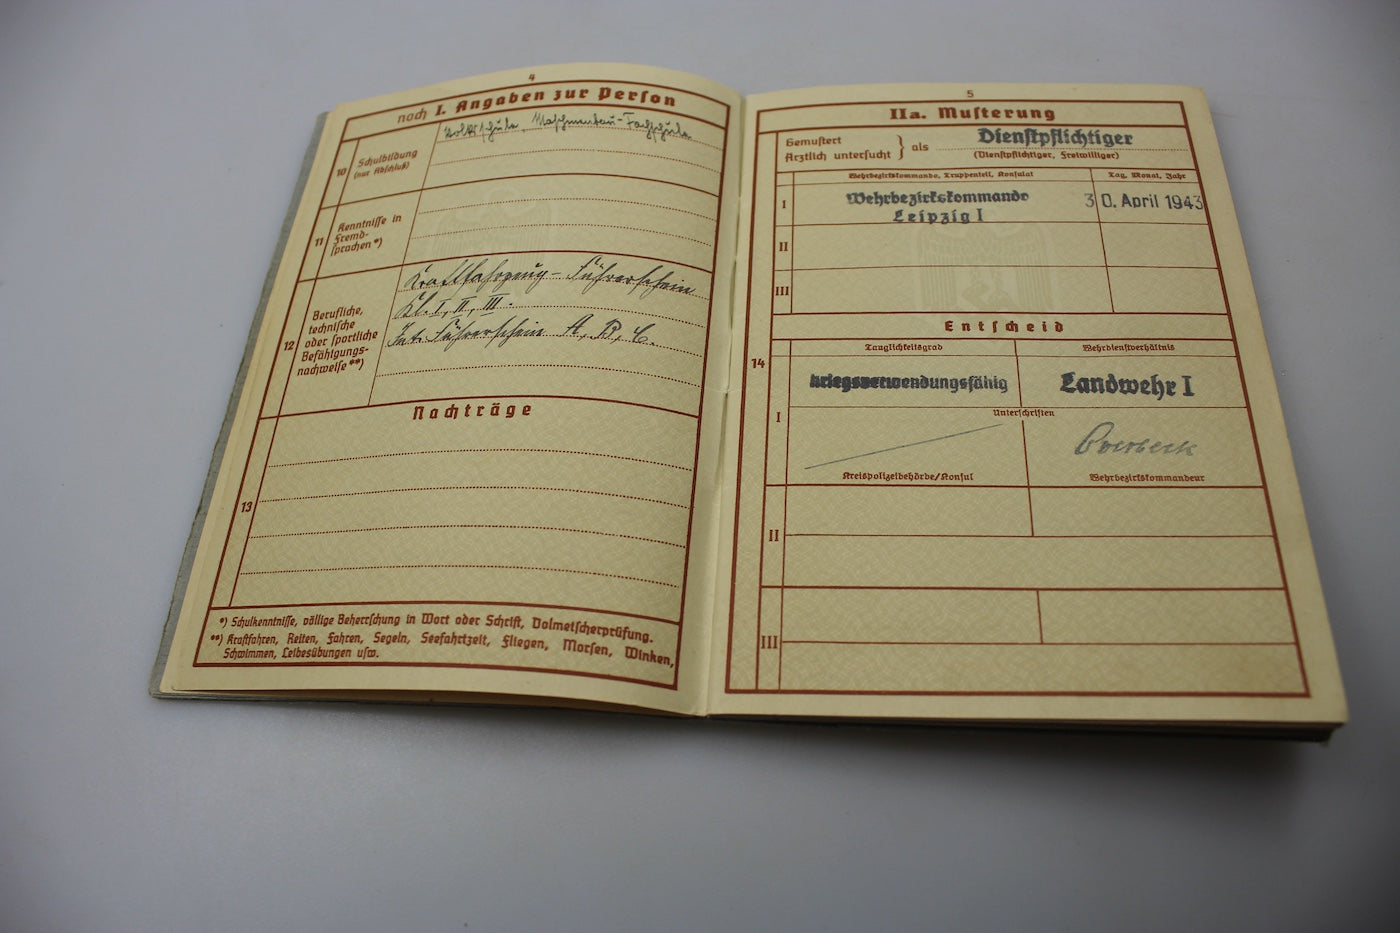 4
noch I. Angaben zur Person
10 Schulbildung
(nur Abschluß)
Volksschule, Maschinenbau-Fachschule
11 Kenntnisse in
Fremd-
sprachen*)
12 Berufliche,
technische
oder sportliche
Befähigungs-
nachweise**)
Kraftfahrzeug-Führerschein
Kl. I, II, III.
Int. Führerschein A, B, C.
Nachträge
13
*) Schulkenntnisse, völlige Beherrschung in Wort oder Schrift, Dolmetscherprüfung.
**) Kraftfahren, Reiten, Fahren, Segeln, Seefahrtzeit, Fliegen, Morsen, Winken,
Schwimmen, Leibesübungen usw.
5
IIa. Musterung
Gemustert
Ärztlich untersucht } als Dienstpflichtiger
(Dienstpflichtiger, Freiwilliger)
Wehrbezirkskommando, Truppenteil, Konsulat Tag, Monat, Jahr
I Wehrbezirkskommando 30. April 1943
Leipzig I
II
III
Entscheid
14 Tauglichkeitsgrad Wehrdienstverhältnis
kriegsverwendungsfähig Landwehr I
I Unterschriften
Overbeck
Kreispolizeibehörde/Konsul Wehrbezirkskommandeur
II
III